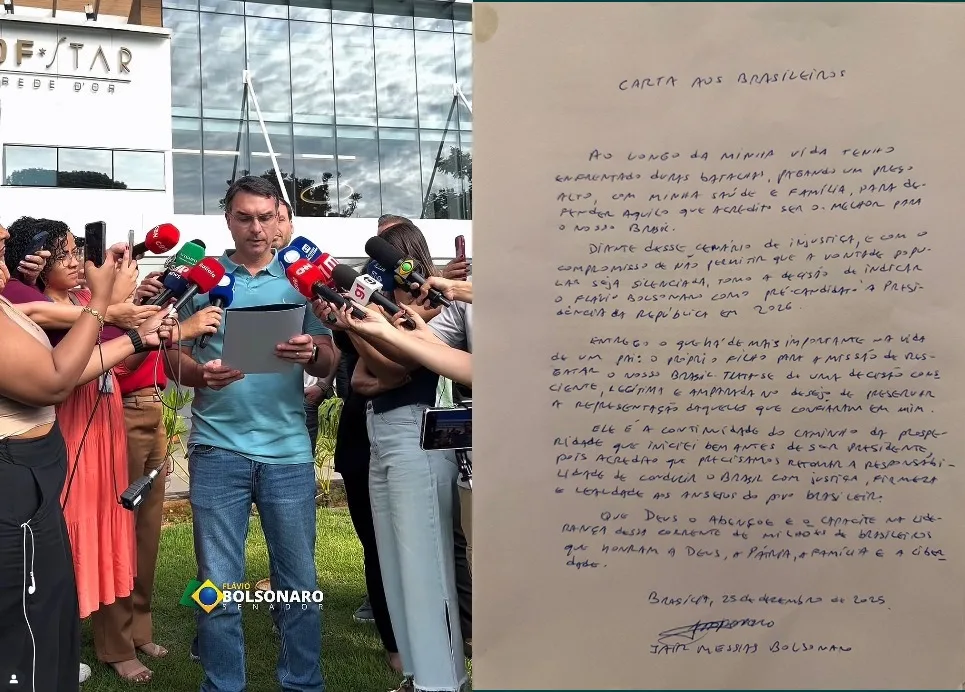 DF STAR
REDE D'OR
CNN
g1
FLÁVIO
BOLSONARO
SENADOR
CARTA AOS BRASILEIROS
AO LONGO DA MINHA VIDA TENHO
ENFRENTADO DURAS BATALHAS, PAGANDO UM PREÇO
ALTO, COM MINHA SAÚDE E FAMÍLIA, PARA DE-
FENDER AQUILO QUE ACREDITO SER O MELHOR PARA
O NOSSO BRASIL.
DIANTE DESSE CENÁRIO DE INJUSTIÇA, E COM O
COMPROMISSO DE NÃO PERMITIR QUE A VONTADE POPU-
LAR SEJA SILENCIADA, TOMO A DECISÃO DE INDICAR
O FLÁVIO BOLSONARO COMO PRÉ-CANDIDATO À PRESI-
DÊNCIA DA REPÚBLICA EM 2026.
ENTREGO O QUE HÁ DE MAIS IMPORTANTE NA VIDA
DE UM PAI: O PRÓPRIO FILHO PARA A MISSÃO DE RES-
GATAR O NOSSO BRASIL. TRATA-SE DE UMA DECISÃO CONS
CIENTE, LEGÍTIMA E AMPARADA NO DESEJO DE PRESERVAR
A REPRESENTAÇÃO DAQUELES QUE CONFIARAM EM MIM.
ELE É A CONTINUIDADE DO CAMINHO DA PROSPE-
RIDADE QUE INICIEI BEM ANTES DE SER PRESIDENTE,
POIS ACREDITO QUE PRECISAMOS RETOMAR A RESPONSABI-
LIDADE DE CONDUZIR O BRASIL COM JUSTIÇA, FIRMEZA
E LEALDADE AOS ANSEIOS DO POVO BRASILEIRO.
QUE DEUS O ABENÇOE E O CAPACITE NA LIDE-
RANÇA DESSA CORRENTE DE MILHÕES DE BRASILEIROS
QUE HONRAM A DEUS, A PÁTRIA, A FAMÍLIA E A LIBER
DADE.
BRASÍLIA, 25 DEZEMBRO DE 2025.
JAIR MESSIAS BOLSONARO